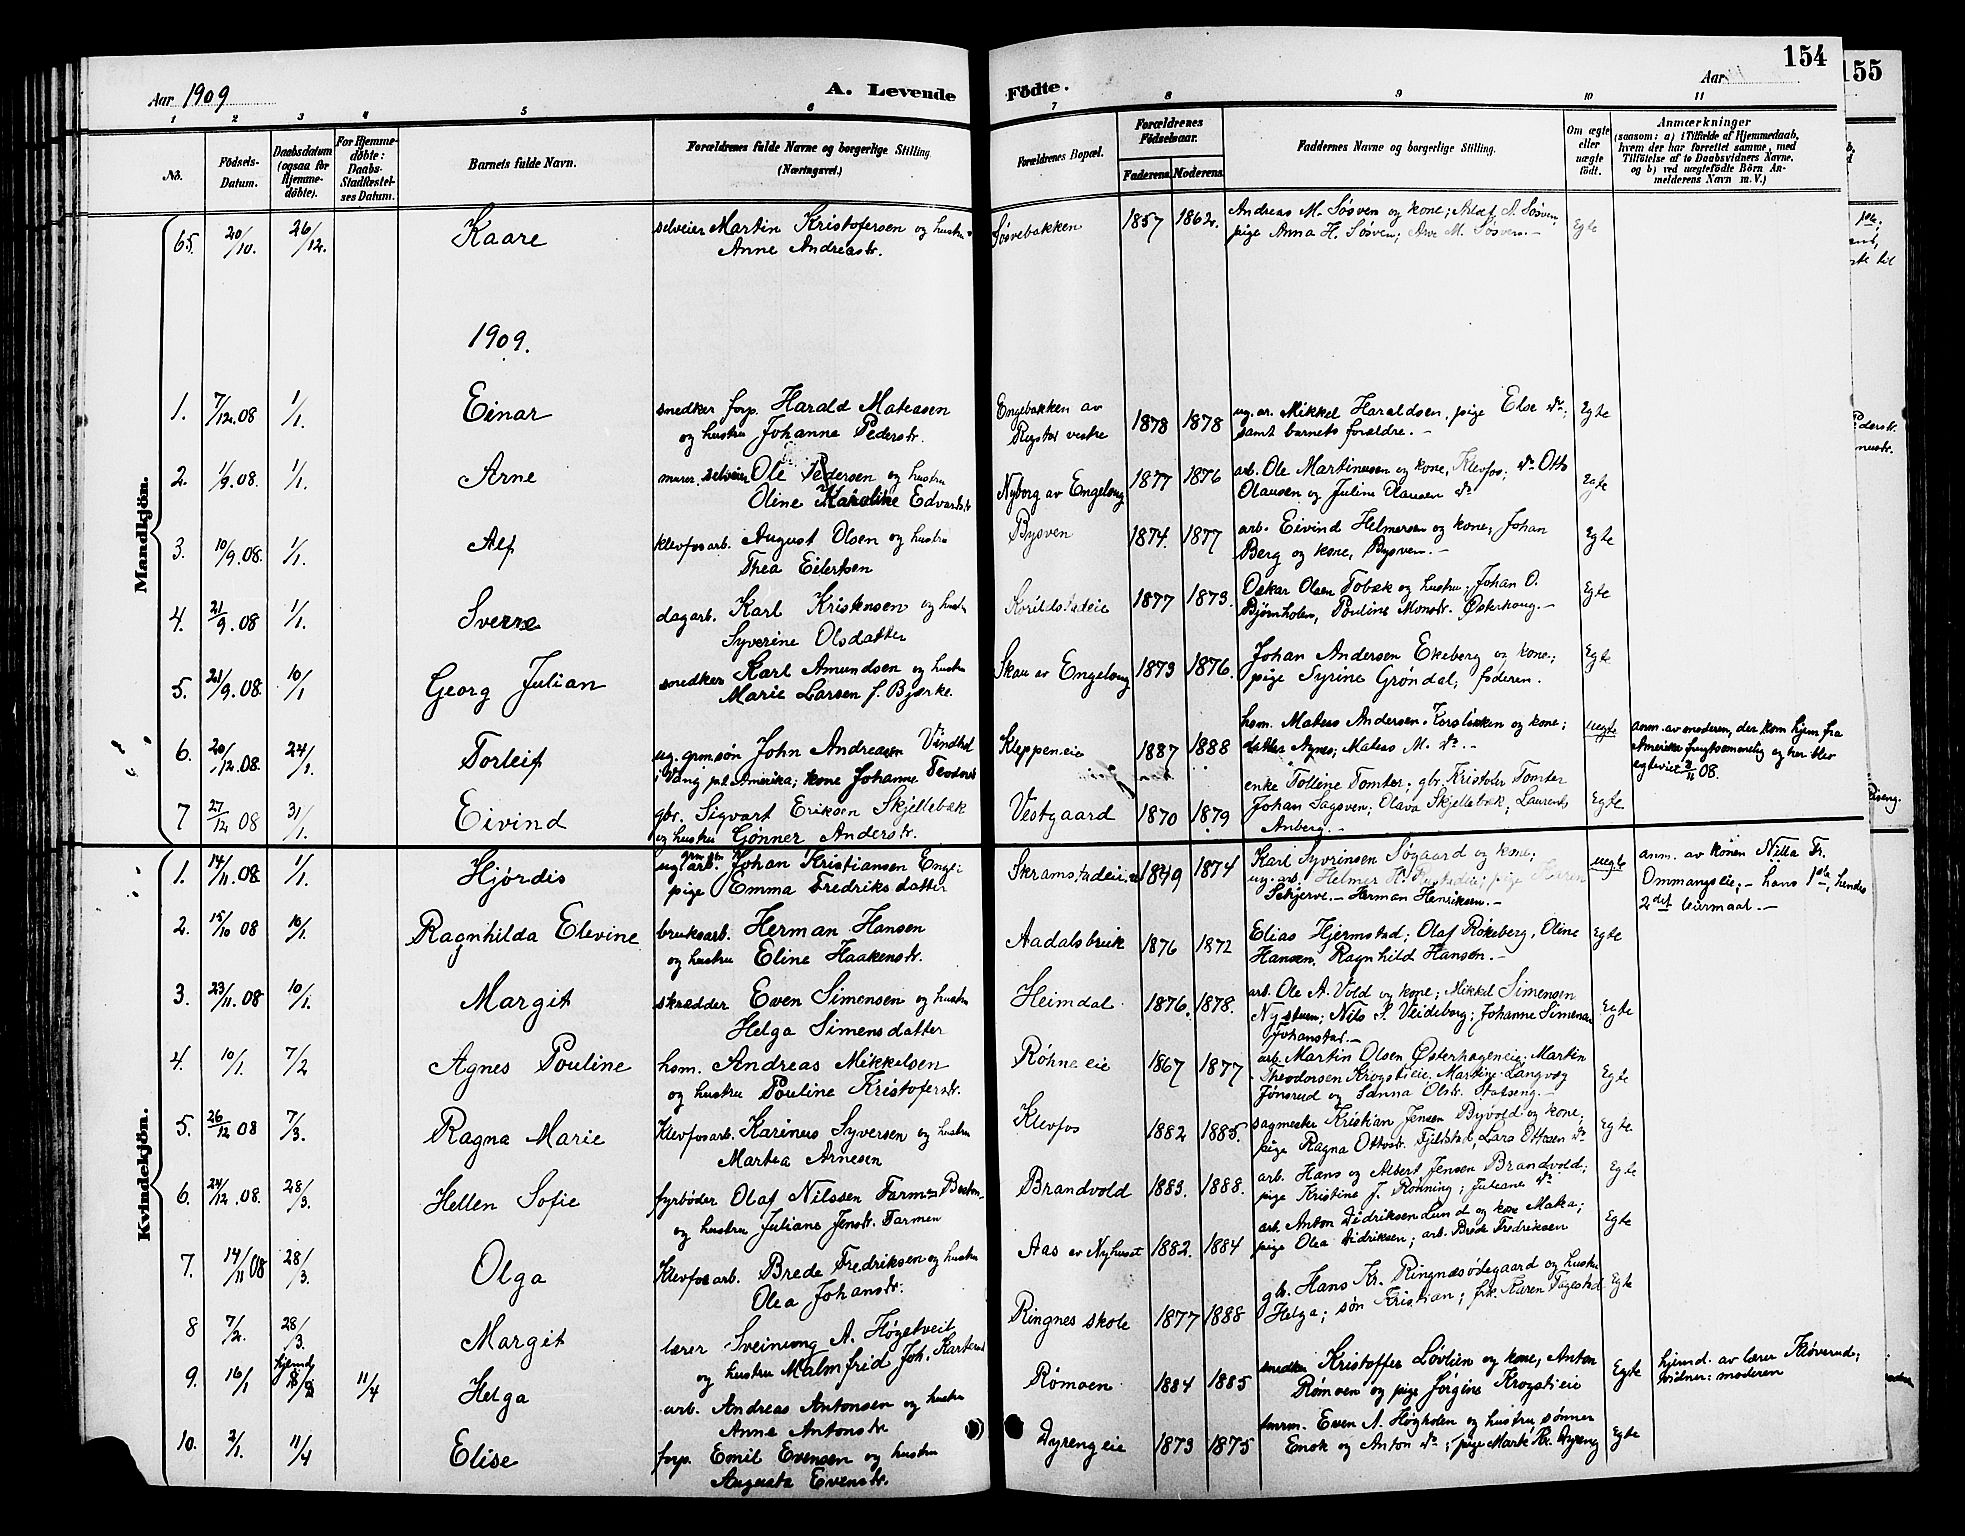 154
155
Aar 1909
A. Levende
Födte.
Aar
1 2 3 4 5 6 7 8 9 10 11
No.
Födsels-Datum.
Daabsdatum (ogsaa for Hjemmedöbte).
For Hjemmedöbte: Daabs-Stadfæstelses Datum.
Barnets fulde Navn.
Forældrenes fulde Navne og borgerlige Stilling
(Næringsvei.)
Forældrenes Bopæl.
Forældrenes Födselsaar.
Faderens. Moderens.
Faddernes Navne og borgerlige Stilling.
Om ægte eller uægte födt.
Anmærkninger
(saasom: a) i Tilfælde af Hjemmedaab, hvem der har forrettet samme, med Tilföielse af to Daabsvidners Navne, og b) ved uægtefödte Börn Anmelderens Navn m. V.)
Mandkjön.
65. 20/10. 26/12. Kaare selveier Martin Kristofersen og hustru Søsvebakken 1857 1862. Andreas M. Søsven og kone; A. Søsven, Egte
Anne Andreastr. pige Anna H. Søsven; M. Søsven. –
1909.
1. 7/12.08 1/1. Einar snedker forp. Harald Mateasen Engebakken av 1878 1878 ug. ar. Mikkel Haraldsen, pige Else do; Egte
og hustru Johanne Pederstr. Rystad vestre samt barnets forældre. –
2. 1/9.08. 1/1. Arne murer, selveier Ole Pedersen og hustru Nyborg av Engelaug 1877 1876 arb. Ole Martinusen og kone, Klevfos; do Otto Egte
Oline Karoline Edvardstr Olausen og Juline Olausen do
3. 10/9.08. 1/1. Alf klevfosarb. August Olsen og hustru Bysven 1874. 1877 arb. Eivind Helmersen og kone; Johan Egte
Thea Eilertsen Berg og kone, Bysven. –
4. 21/9.08 1/1. Sverre dagarb. Karl Kristensen og hustr 1877 1873. Oskar Olsen Tobæk og hustru; Johan O. Egte
Syverine Olsdatter Bjørnholen, Pouline Monstr. Østerhaug. –
5. 21/9.08. 10/1 Georg Julian snedker Karl Amundsen og hustr Skau av Engelaug 1873 1876. Johan Andersen Ekeberg og kone; Egte
Marie Larsen f. Bjørke. pige Syrine Grøndal; faderen.
6. 20/12.08. 24/1. Torleif ug. grmsøn John Andreasen Kleppeneie 1887 1888 hsm. Mateas Andersen og kone; uegte anm. av moderen, der kom hjem fra
i Vang, p.t. Amerika; kone Johanne datter Agnes; Mateas M. do. – Amerika frugtsommelig og her blev
egteviet 08.
7 27/12 08 31/1. Eivind gbr. Sigvart Eriksen Skjellebæk Vestgaard 1870 1879 enke Tolline Tomter; gbr. Kristofer Tomter Egte
og hustru Gønner Anderstr. Johan Sagsven; Olava Skjellebæk; Laurents
Anberg. –
Kvindekjön.
1. 14/11.08 1/1. Hjørdis ug. arb. Johan Kristiansen Skramstadeie 1849 1874 Karl Syvrinsen Søgaard og kone; uegte anm. av konen Nilla Fr.
pige Emma Fredriksdatter ug. arb. Helmer pige Karen Ommangseie. – hans 1ste, hendes
Skjerve. – Herman Henriksen. – 2det leiermaal. –
2. 15/10 08 10/1. Ragnhilda Elevine bruksarb. Herman Hansen Aadalsbruk 1876 1872 Elias Hjermstad; Olaf Røkeberg, Oline Egte
og hustru Eline Haakenstr. Hansen, Ragnhild Hansen. –
3. 23/11.08 10/1. Margit skrædder Even Simensen og hustru Heimdal 1876. 1878. arb. Ole A. Vold og kone; Mikkel Simensen Egte
Helga Simensdatter Nystuen; Nils S. Veideborg; Johanne Simensen
Johanstad. –
4. 10/1. 7/2 Agnes Pouline hsm. Andreas Mikkelsen Røhne eie 1867 1877 arb. Martin Olsen Østerhageneie; Martin Egte
og hustru Pouline Kristoferstr. Theodorsen Krogstieie. Martine Langvæg
Jønsrud og Sanna Olstr. Statseng. –
5. 26/12 08 7/3. Ragna Marie Klevfosarb. Karinus Syversen og hustru Klevfos 1882 1885. sagmester Kristian Jensen Byvold og kone; Egte
Martea Arnesen pige Ragna Ottostr. Fjeldstad, Lars Ottosen do
6. 24/12.08. 28/3. Hellen Sofie fyrbøder Olaf Nilssen Farmen Brandvold 1883. 1888. arb. Hans og Albert Jensen Brandvold; Egte
og hustru Juliane Jenstr. Farmen pige Kristine J. Rønning; Juliane do
7. 14/11 08 28/3. Olga Klevfosarb. Brede Fredriksen og hustru Aas av Nyhuset 1882. 1884 arb. Anton Didriksen Lund og kone Maka; Egte
Olea Johanstr. pige Olea Didriksen; arb. Brede Fredriksen
8 7/2. 28/3. Margit lærer Sveinung A. Høgetveit Ringnes skole 1877 1888 gb. Hans Kr. Ringnæsødegaard og hustru Egte
og hustru Malmfrid Joh. Helga; søn Kristian; frk. Karen Fagestad
9. 16/1 hjemd. 11/4 Helga arb. Andreas Antonsen og hustru Rømoen 1884 1885 snedker Kristoffer Løvlien og kone, Anton Egte hjemd. av lærer Kløverud;
Anne Antonstr. Rømoen og pige Jørgine Krogstieie vidner: moderen
10. 2/1. 11/4 Elise forp. Emil Evensen og hustru Dyrengeie 1873 1875 Even A. Høgholen og hustru, sønner Egte
Augusta Evenstr. Enok og Anton do; pige Marte Kr. Dyreng